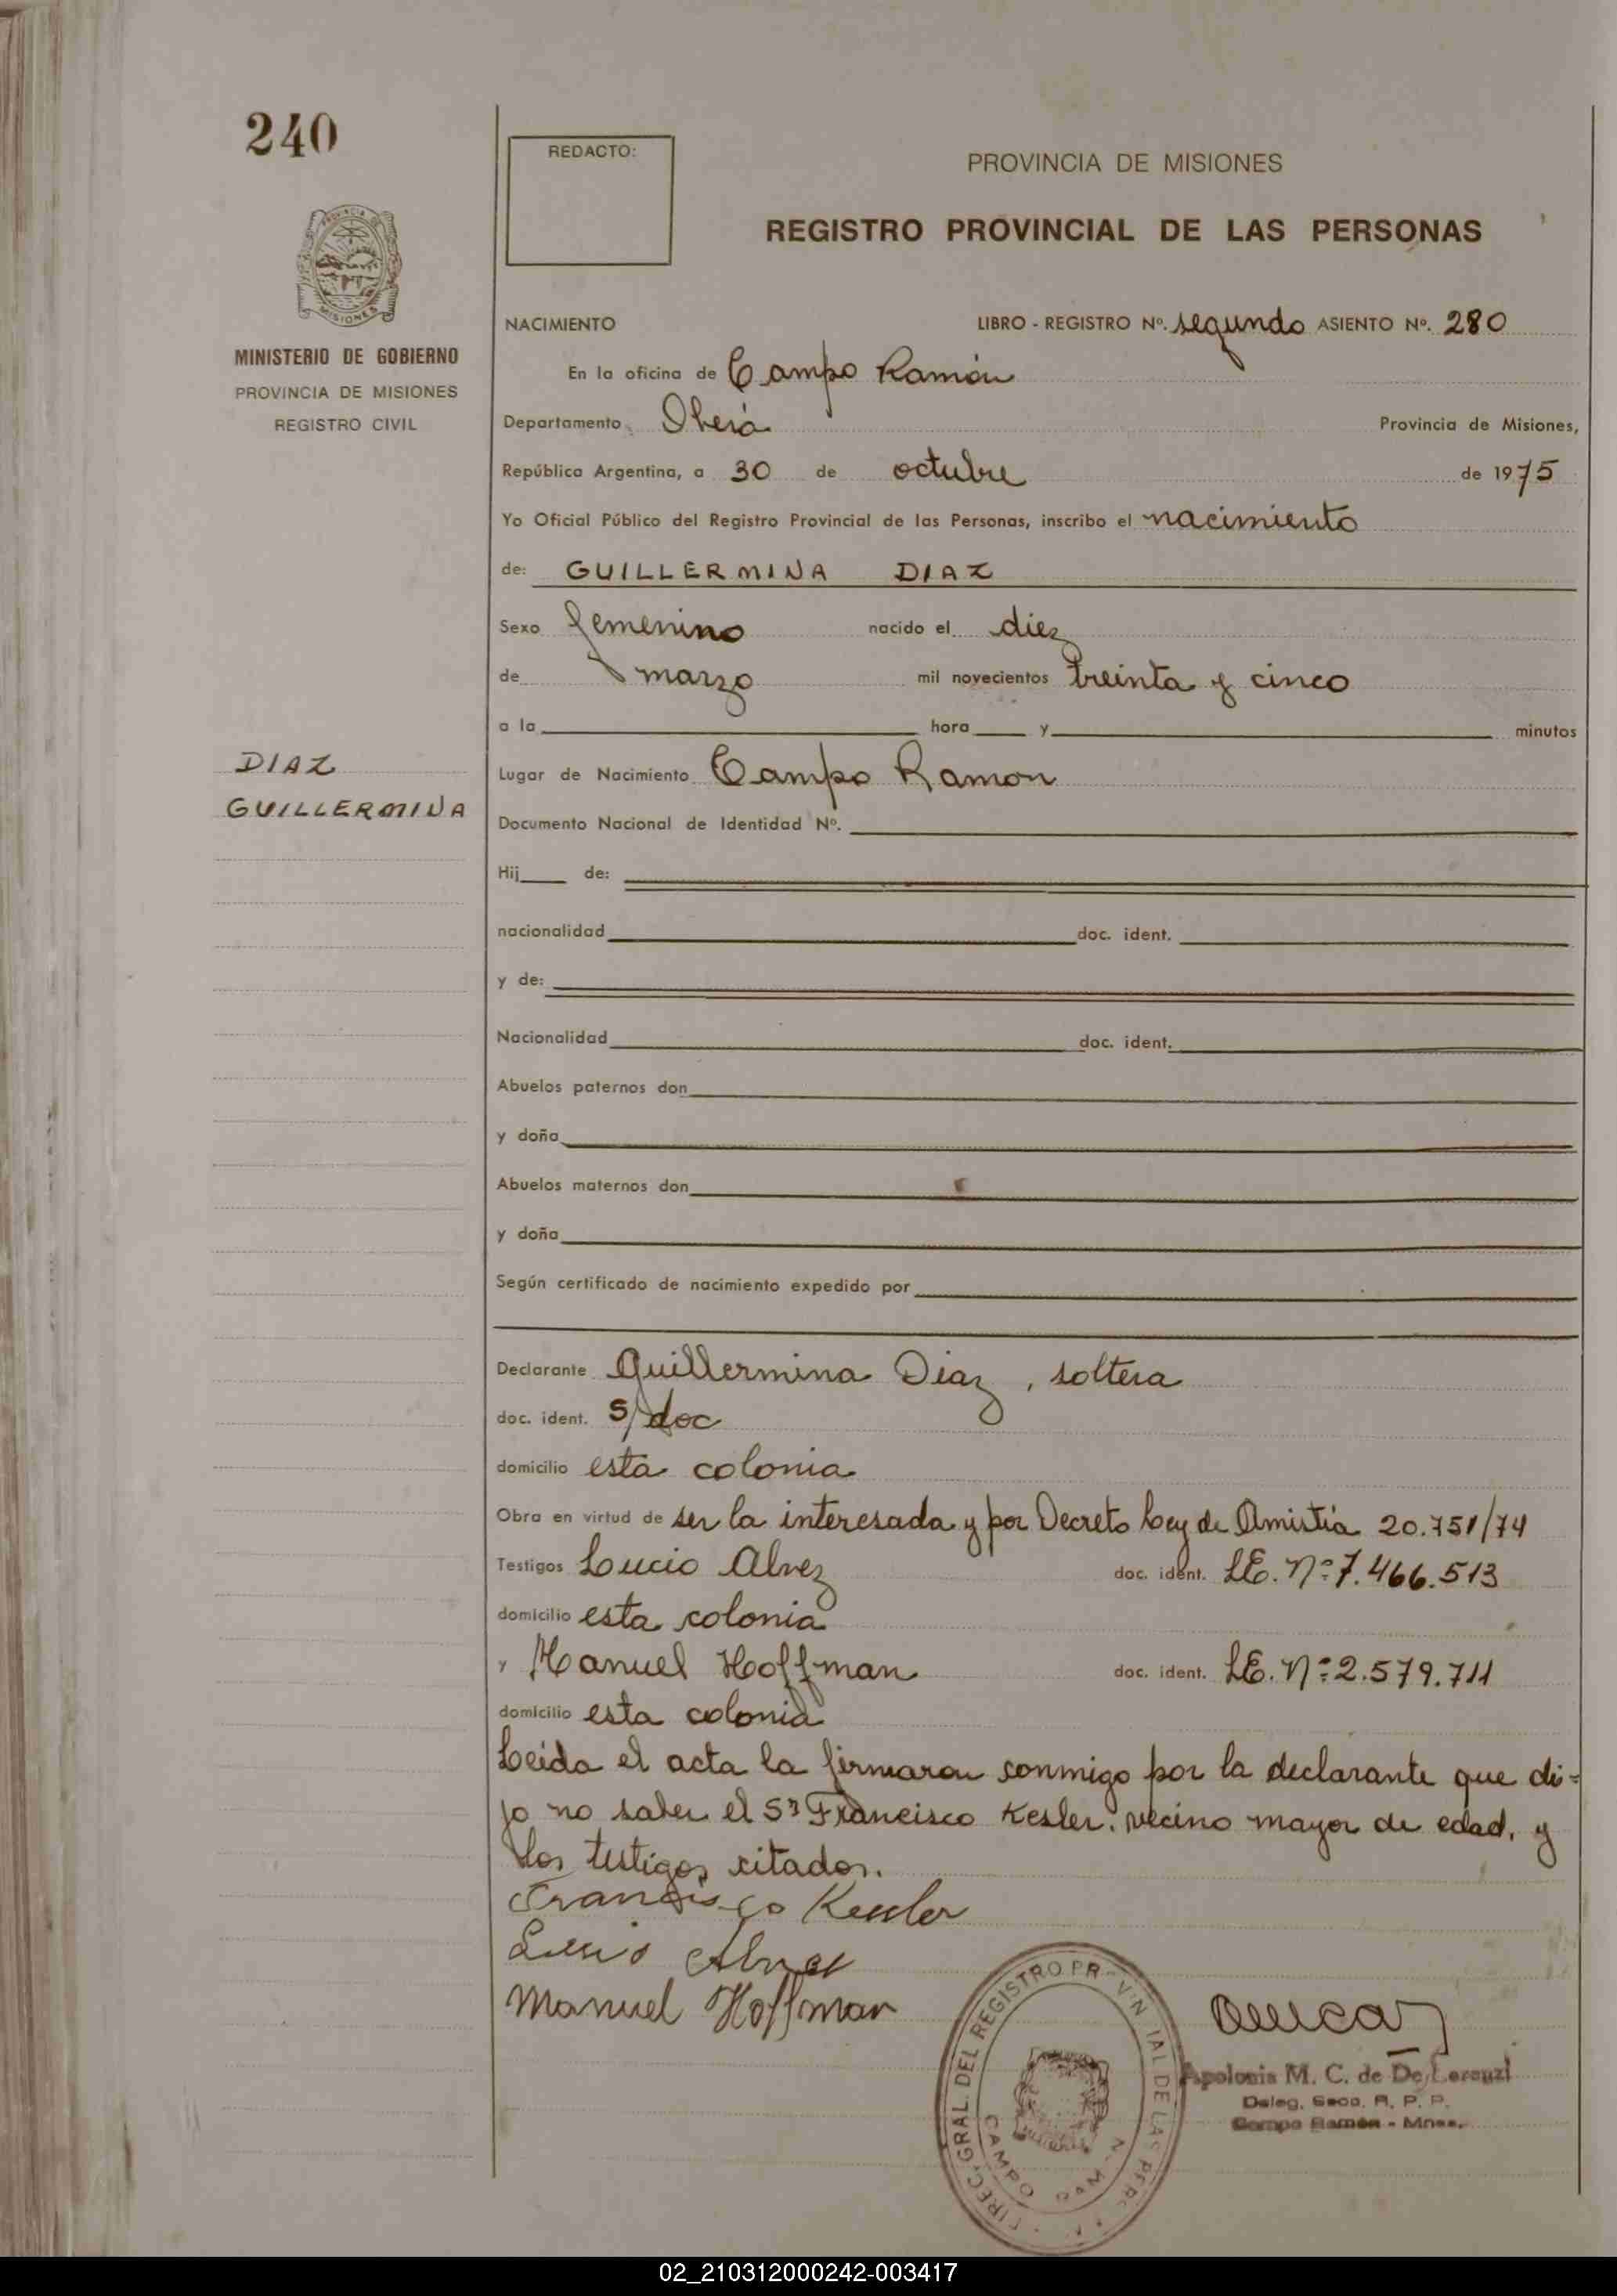 240
REDACTO:
PROVINCIA DE MISIONES
REGISTRO PROVINCIAL DE LAS PERSONAS
PROVINCIA DE
MISIONES
MINISTERIO DE GOBIERNO
PROVINCIA DE MISIONES
REGISTRO CIVIL
NACIMIENTO LIBRO - REGISTRO Nº. segundo ASIENTO Nº. 280
En la oficina de Campo Ramón
Departamento Oberá Provincia de Misiones,
República Argentina, a 30 de octubre de 1975
Yo Oficial Público del Registro Provincial de las Personas, inscribo el nacimiento
de: GUILLERMINA DIAZ
Sexo femenino nacido el diez
de marzo mil novecientos treinta y cinco
a la hora y minutos
DIAZ
GUILLERMINA
Lugar de Nacimiento Campo Ramon
Documento Nacional de Identidad Nº.
Hij de:
nacionalidad doc. ident.
y de:
Nacionalidad doc. ident.
Abuelos paternos don
y doña
Abuelos maternos don
y doña
Según certificado de nacimiento expedido por
Declarante Guillermina Diaz, soltera
doc. ident. s/doc
domicilio esta colonia
Obra en virtud de ser la interesada y por Decreto Ley de Amistía 20.751/74
Testigos Lucio Alvez doc. ident. LE. Nº 7.466.513
domicilio esta colonia
y Manuel Hoffman doc. ident. LE. Nº 2.579.711
domicilio esta colonia
Leida el acta la firmaron conmigo por la declarante que di=
jo no saber el Sr Francisco Kesler. vecino mayor de edad, y
los testigos citados.
Francisco Kessler
Lucio Alvez
Manuel Hoffman
DIREC. GRAL. DEL REGISTRO PR VIN IAL DE LAS PER
CAMPO RAM N
Apolonia M. C. de De Lorenzi
Deleg. Secc. R. P. P.
Campo Ramón - Mnes.
02_210312000242-003417